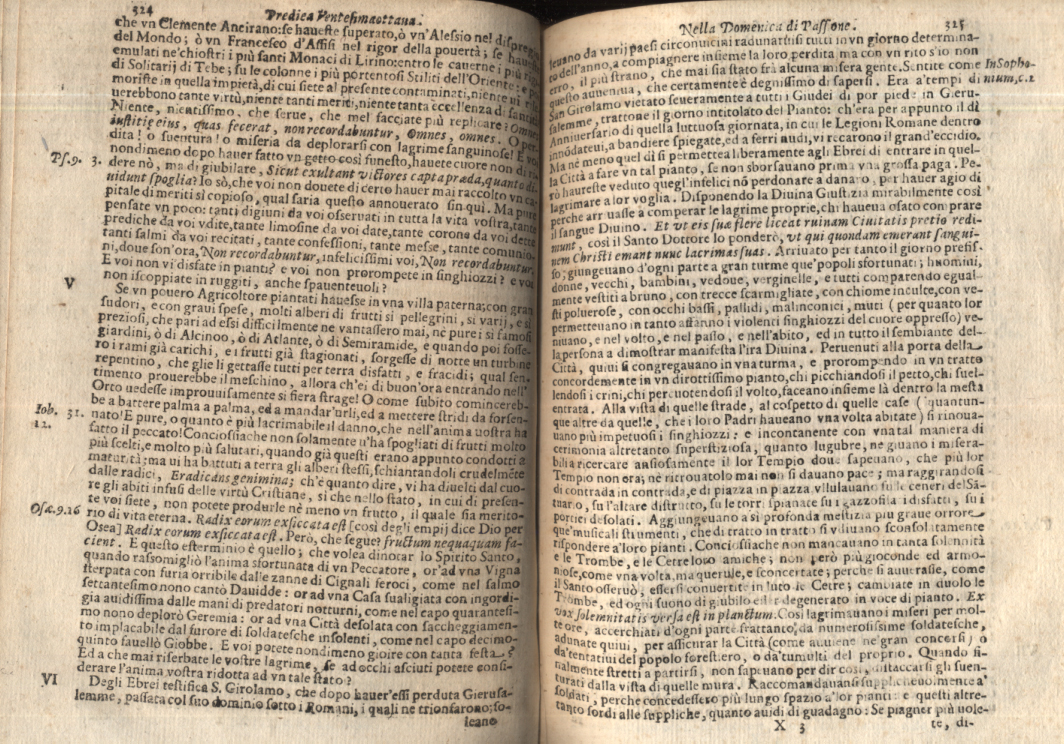 324 Predica Ventesimaottaua.
che vn Clemente Ancirano: se haueste superato, ò vn'Alessio nel dispregio
del Mondo; ò vn Francesco d'Assisi nel rigor della pouertà; se haueste
emulati ne'chiostri i più santi Monaci di Lirino: entro le cauerne i più rigidi
di Solitarij di Tebe; su le colonne i più portentosi Stiliti dell'Oriente: e poi
moriste in quella impietà, di cui siete al presente contaminati, niente vi
uerebbono tante virtù, niente tanti meriti, niente tanta eccellenza di santità.
Niente, nientissimo, che serue, che mel facciate più replicare? Omnes
iustitiæ eius, quas fecerat, non recordabuntur, Omnes, omnes. O per-
dita! o suentura! o miseria da deplorarsi con lagrime sanguinose! E voi
nondimeno dopo hauer fatto vn getto così funesto, hauete cuore non di ri-
Ps.9. 3. dere nò, ma di giubilare, Sicut exultant victores capta præda, quando di-
uidunt spolia? Io sò, che voi non douete di certo hauer mai raccolto vn ca-
pitale di meriti sì copioso, qual saria questo annouerato sin qui. Ma pure
pensate vn poco: tanti digiuni da voi osseruati in tutta la vita vostra, tante
prediche da voi vdite, tante limosine da voi date, tante corone da voi dette
tanti salmi da voi recitati, tante confessioni, tante messe, tante comunio-
ni, doue son'ora, Non recordabuntur, infelicissimi voi, Non recordabuntur.
E voi non vi disfate in pianti? e voi non prorompete in singhiozzi? e voi
non iscoppiate in ruggiti, anche spauenteuoli?
V Se vn pouero Agricoltore piantati hauesse in vna villa paterna, con gran
sudori, e con graui spese, molti alberi di frutti sì pellegrini, sì varij, e sì
preziosi, che pari ad essi difficilmente ne vantassero mai, nè pure i sì famosi
giardini, ò di Alcinoo, ò di Atlante, ò di Semiramide, e quando poi fosse-
ro i rami già carichi, e i frutti già stagionati, sorgesse di notte un turbine
repentino, che glie li gettasse tutti per terra disfatti, e fracidi; qual sen-
timento prouerebbe il meschino, allora ch'ei di buon'ora entrando nell'
Orto uedesse improuuisamente sì fiera strage! O come subito comincereb-
be a battere palma a palma, ed a mandar'urli, ed a mettere stridi da forsen-
Iob. 31. nato! E pure, o quanto è più lacrimabile il danno, che nell'anima uostra ha
12. fatto il peccato! Conciossiache non solamente u'ha spogliati di frutti molto
più scelti, e molto più salutari, quando già questi erano appunto condotti a
maturità; ma ui ha battuti a terra gli alberi stessi, schiantandoli crudelmẽte
dalle radici, Eradicans genimina; ch'è quanto dire, vi ha diuelti dal cuo-
re gli abiti infusi delle virtù Cristiane, sì che nello stato, in cui di presen-
Osæ.9.16 te voi siete, non potete produrle nè meno vn frutto, il quale sia merito-
rio di vita eterna. Radix eorum exsiccata est [così degli empij dice Dio per
Osea] Radix eorum exsiccata est. Però, che segue? fructum nequaquam fa-
cient. E questo esterminio è quello; che volea dinotar lo Spirito Santo,
quando rassomigliò l'anima sfortunata di vn Peccatore, or'ad vna Vigna
sterpata con furia orribile dalle zanne di Cignali feroci, come nel salmo
settantesimo nono cantò Dauidde: or ad vna Casa sualigiata con ingordi-
gia auidissima dalle mani di predatori notturni, come nel capo quarantesi-
mo nono deplorò Geremia: or ad vna Città desolata con saccheggiamen-
to implacabile dal furore di soldatesche insolenti, come nel capo decimo-
quinto fauellò Giobbe. E voi potete nondimeno gioire con tanta festa?
Ed a che mai riserbate le vostre lagrime, se ad occhi asciuti potete consi-
derare l'anima vostra ridotta ad vn tale stato?
VI Degli Ebrei testifica S. Girolamo, che dopo hauer'essi perduta Gierusa-
lemme, passata col suo dominio sotto i Romani, i quali ne trionfarono; so-
leano
Nella Domenica di Passione. 325
leuano da varij paesi circonuicini radunarsi tutti in vn giorno determina-
to dell'anno, a compiagnere insieme la loro perdita, ma con vn rito s'io non
erro, il più strano, che mai sia stato frà alcuna misera gente. Sentite come In Sopho-
questo aueniua, che certamente è degnissimo di sapersi. Era a'tempi di nium, c. 1
San Girolamo vietato seueramente a tutti i Giudei di por piede in Gieru-
salemme, trattone il giorno intitolato del Pianto: ch'era per appunto il dì
Anniuersario di quella luttuosa giornata, in cui le Legioni Romane dentro
innōdateui, a bandiere spiegate, ed a ferri nudi, vi recarono il grand'eccidio.
Ma nè meno quel dì si permettea liberamente agli Ebrei di entrare in quel-
la Città a fare vn tal pianto, se non sborsauano prima vna grossa paga. Pe-
rò haureste veduto quegl'infelici nō perdonare a danaro, per hauer agio di
lagrimare a lor voglia. Disponendo la Diuina Giustizia mirabilmente così
perche arriuasse a comperar le lagrime proprie, chi haueua osato comprare
il sangue Diuino. Et vt eis suæ flere liceat ruinam Ciuitatis pretio redi-
munt, così il Santo Dottore lo ponderò, vt qui quondam emerant sangui-
nem Christi emant nunc lacrimas suas. Arriuato per tanto il giorno prefis-
so; giungeuano d'ogni parte a gran turme que'popoli sfortunati; huomini,
donne, vecchi, bambini, vedoue, verginelle, e tutti comparendo egual-
mente vestiti a bruno, con trecce scarmigliate, con chiome inculte, con ve-
sti poluerose, con occhi bassi, pallidi, malinconici, muti (per quanto lor
permetteuano in tanto affanno i violenti singhiozzi del cuore oppresso) ve-
niuano, e nel volto, e nel passo, e nell'abito, ed in tutto il sembiante del-
la persona a dimostrar manifesta l'ira Diuina. Peruenuti alla porta della
Città, quiui si congregauano in vna turma, e prorompendo in vn tratto
concordemente in vn dirottissimo pianto, chi picchiandosi il petto, chi suel-
lendosi i crini, chi percuotendosi il volto, faceano insieme là dentro la mesta
entrata. Alla vista di quelle strade, al cospetto di quelle case (quantun-
que altre da quelle, che i loro Padri haueano vna volta abitate) si rinoua-
uano più impetuosi i singhiozzi: e incontanente con vna tal maniera di
cerimonia altretanto superstiziosa, quanto lugubre, ne giuano i misera-
bili a ricercare ansiosamente il lor Tempio doue sapeuano, che più lor
Tempio non era; nè ritrouatolo mai non si dauano pace; ma raggirandosi
di contrada in contrada, e di piazza in piazza vllulauano su le ceneri del Sā-
tuario, su l'altare distrutto, su le torri spianate su i gazzofilaci disfatti, su i
portici desolati. Aggiungeuano a sì profonda mestizia più graue orrore
que'musicali strumenti, che di tratto in tratto si vdiuano sconsolatamente
rispondere a'loro pianti. Conciossiache non mancauano in tanta solennità
e le Trombe, e le Cetre loro amiche; non però più gioconde ed armo-
niose, come vna volta, ma querule, e sconcertate; perche si auuerasse, come
il Santo osseruò, essersi conuertite in luto le Cetre; cambiate in duolo le
Trombe, ed ogni suono di giubilo esser degenerato in voce di pianto. Ex
vox solemnitatis versa est in planctum. Così lagrimauano i miseri per mol-
te ore, accerchiati d'ogni parte frattanto, da numerosissime soldatesche,
adunate quiui, per assicurar la Città (come auuiene ne'gran concorsi) o
da'tentatiui del popolo forestiero, o da'tumulti del proprio. Quando fi-
nalmente stretti a partirsi, non sapeuano per dir così, distaccarsi gli suen-
turati dalla vista di quelle mura. Raccomandauansi supplicheuolmente a'
soldati, perche concedessero più lungo spazio a'lor pianti: e questi altre-
tanto sordi alle suppliche, quanto auidi di guadagno: Se piagner più uole-
X 3 te, di-